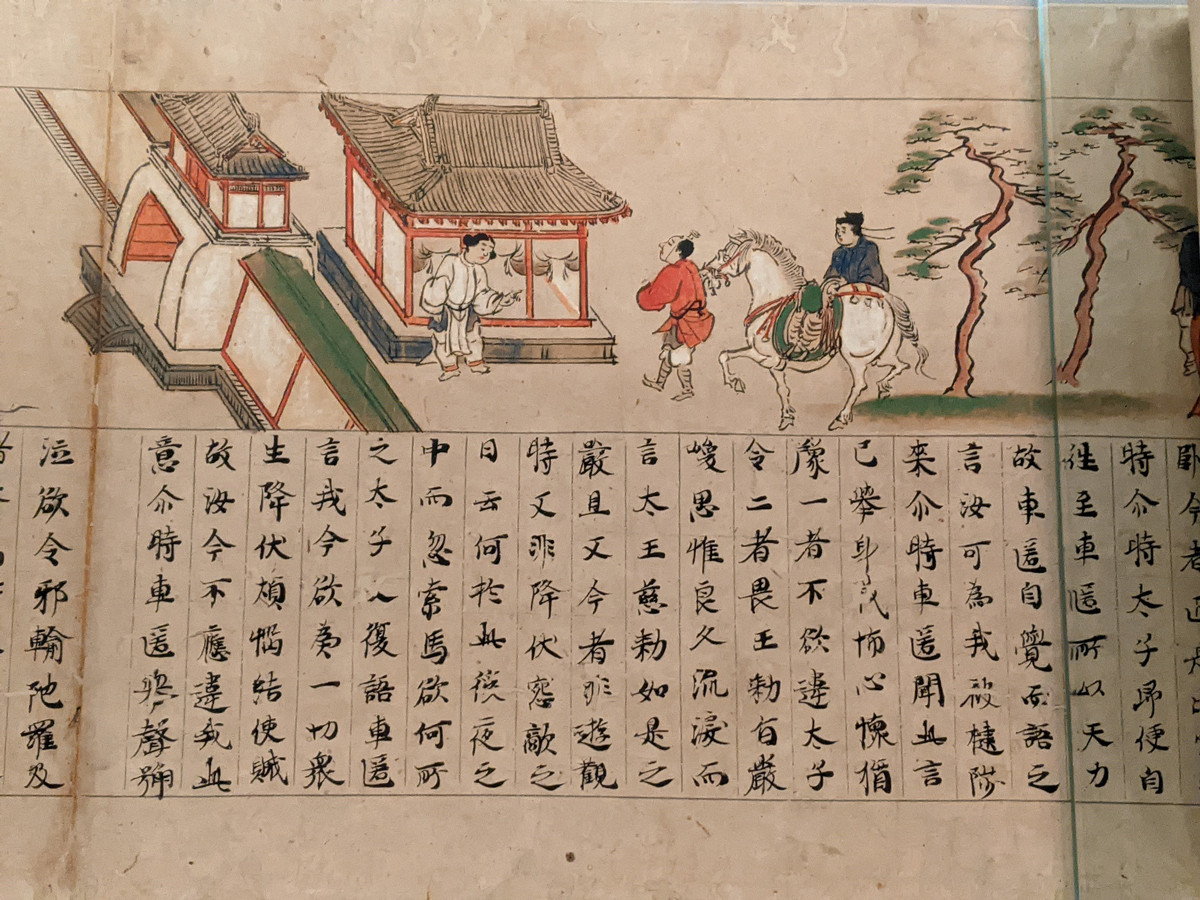 臥今者正是
時尒時太子即便自
徃至車匿所以天力
故車匿自覺而語之
言汝可為我被揵陟
来尒時車匿聞此言
已舉身戰怖心懷猶
豫一者不欲違太子
令二者畏王勑旨嚴
峻思惟良久流淚而
言太王慈勑如是之
嚴且又今者非遊觀
時又非降伏惌敵之
日云何於此後夜之
中而忽索馬欲何所
之太子又復語車匿
言我今欲為一切衆
生降伏煩惱結使賊
故汝今不應違我此
意尒時車匿舉聲號
泣欲令邪輸陁羅及